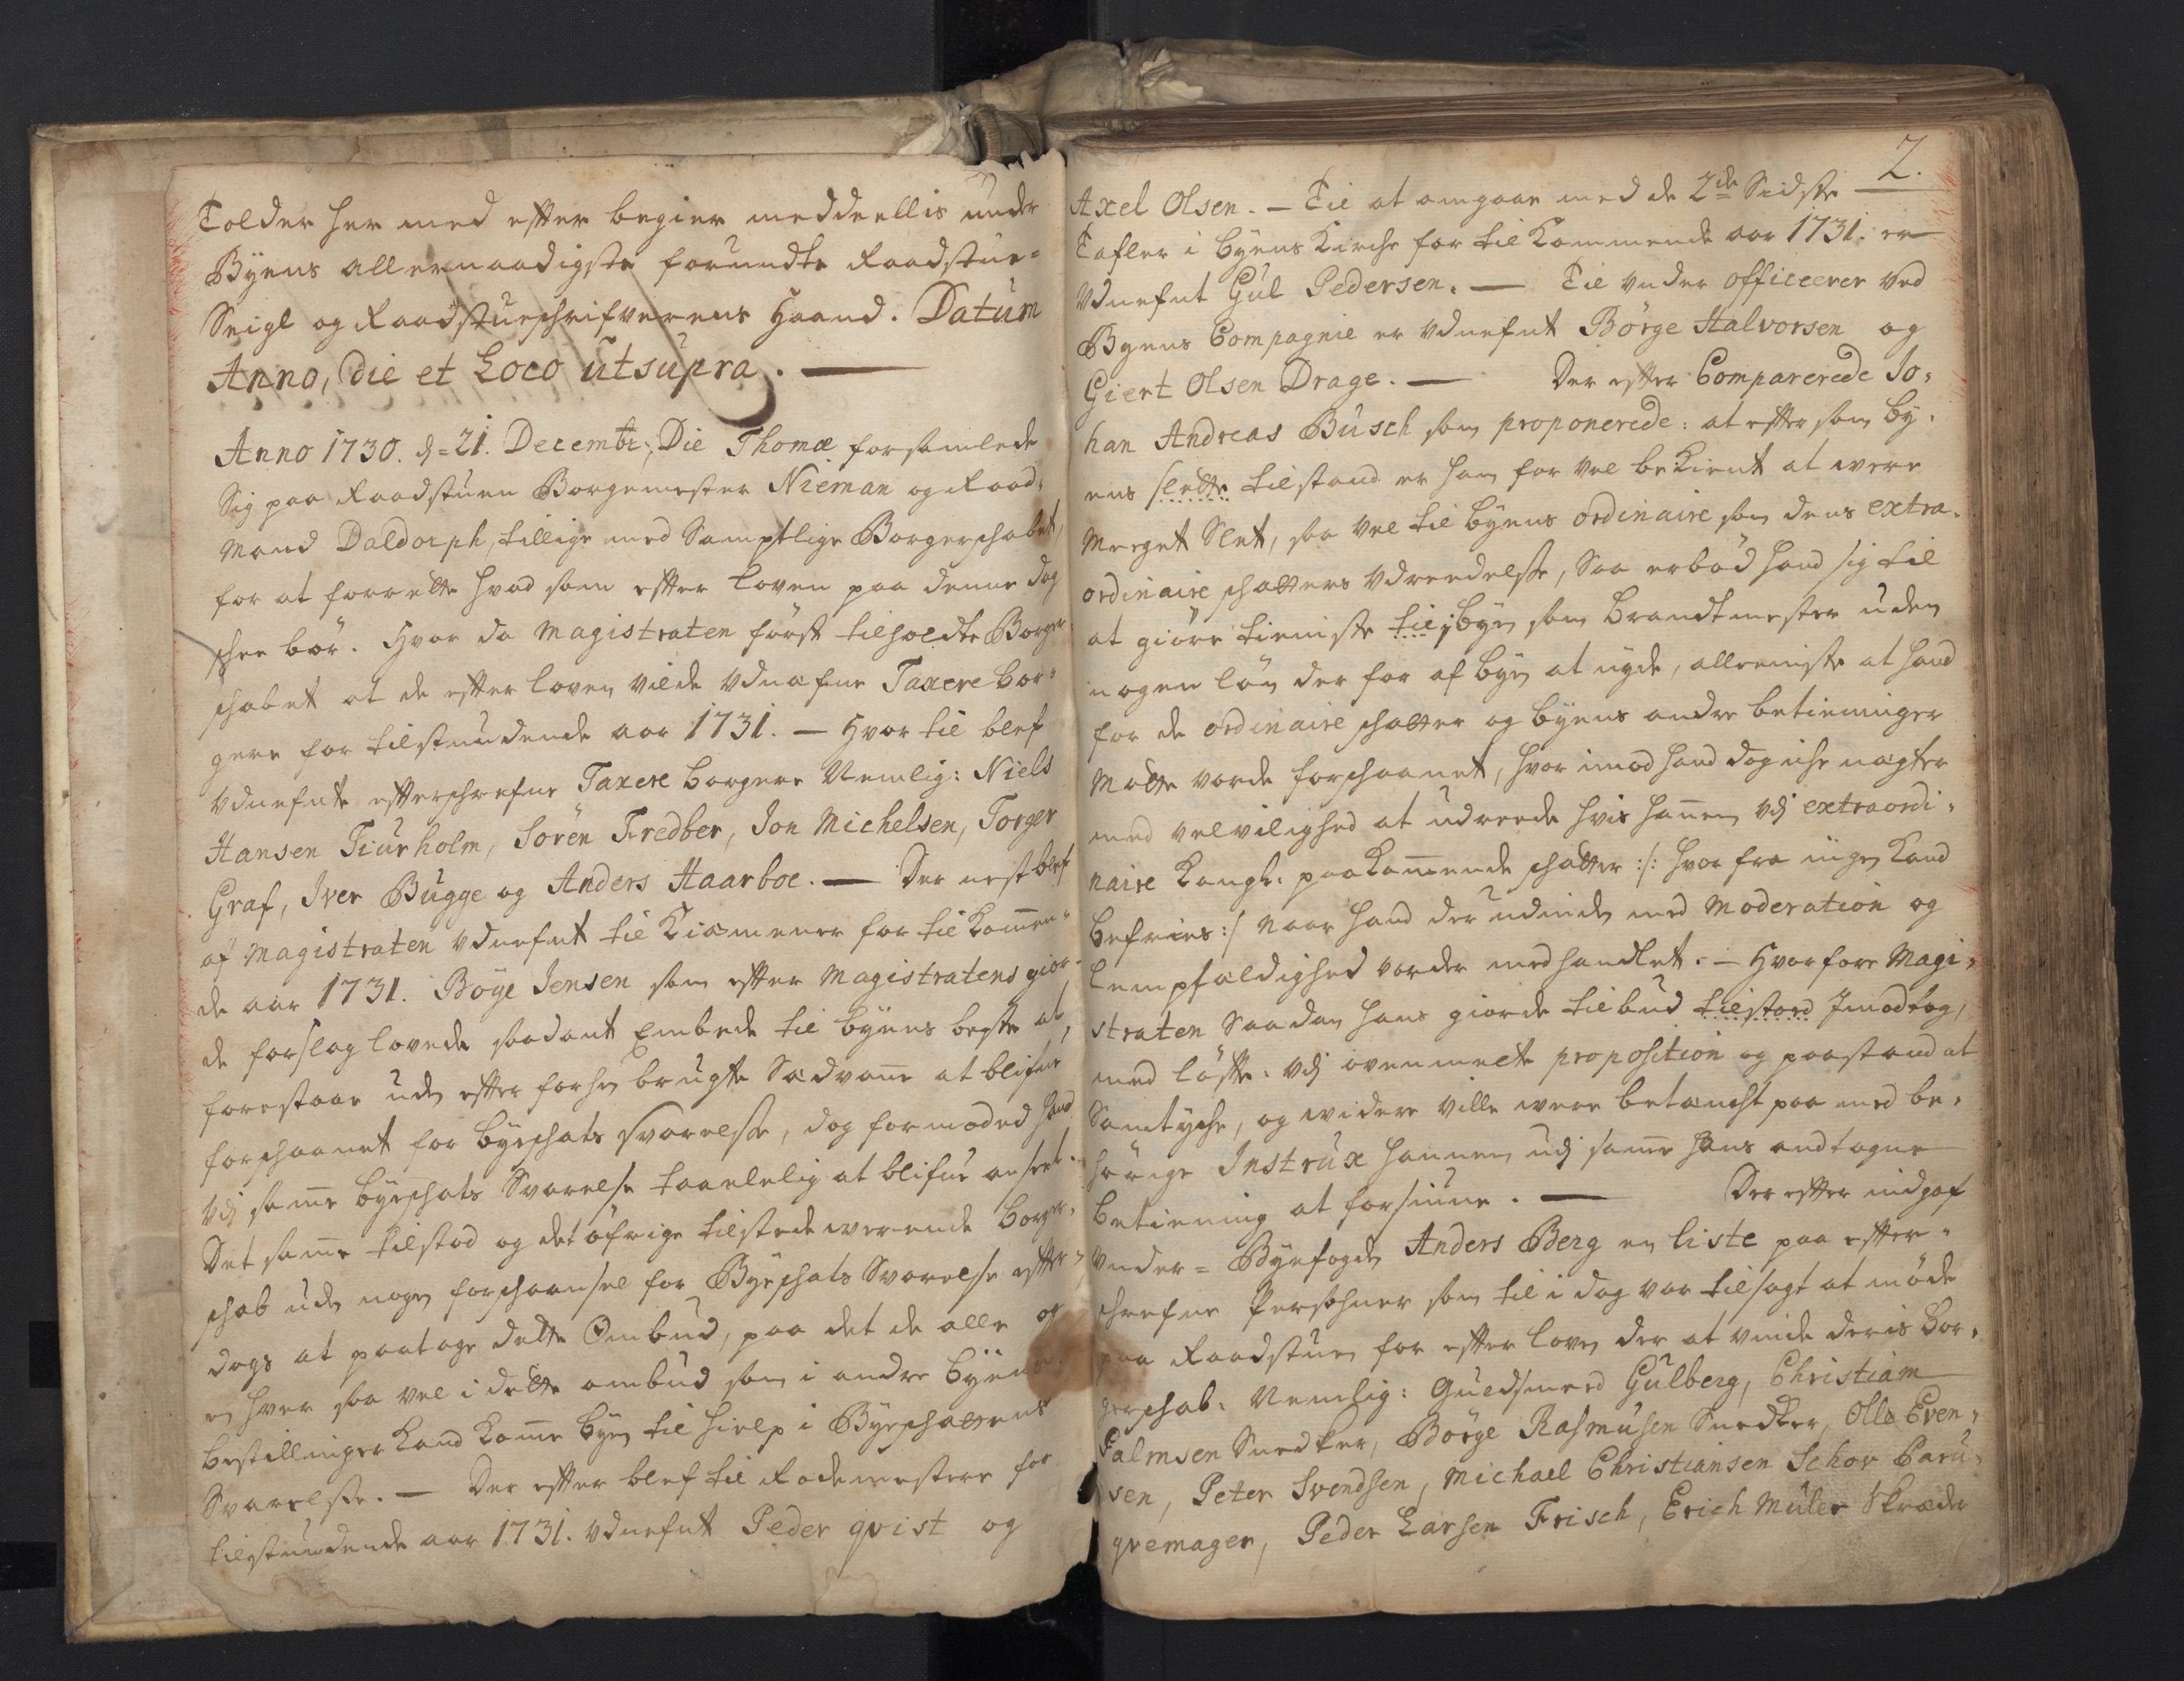 Tolder her med efter begier meddeellis under
Byens allernaadigste forundte Raadstue-
Seigl og Raadstueschrifverens Haand. Datum
Anno, die et Loco utsupra. —
Anno 1730. d= 21. Decembr:, Die Thomæ forsamlede
Sig paa Raadstuen Borgemester Nieman og Raad-
mand Daldorph, tillige med Samptlige Borgerschabet,
for at forrette hvad som efter Loven paa denne dag
schee bör. Hvor da Magistraten först tilholdte Borger-
schabet at de efter loven vilde Udnæfne Taxere bor-
gere for tilstundende aar 1731. — Hvor til blef
Udnefnte efterschrefne Taxere borgere Nemlig: Niels
Hansen Tiurholm, Sören Fredber, Jon Michelsen, Torger
Graf, Iver Bugge og Anders Haarboe. — Der nest blef
af Magistraten Udnefnt til Kiæmener for til Kommen-
de aar 1731. Böye Jensen som efter Magistratens gior-
de forslag lovede saadant Embede til byens beste at
forestaae uden efter forhen brugte Sædvane at blifve
forschaanet for byeschats svarelse, dog formoded hand
Udj samme byeschats Svarelse taalelig at blifve anseet.
Det samme tilstod og det öfrige tilstedeværende borger-
schab uden nogen forschaansel for Byeschats Svarelse efter-
dags at paatage dette Ombud, paa det de alle og
en hver saa vel i dette ombud som i andre byens
bestillinger kand komme byen til hielp i Byeschattens
Svarelse. — Der efter blef til Rodemestere for
tilstundende aar 1731. Udnefnt Peder qvist og
2.
Axel Olsen. — Til at omgaae med de 2de Sidste
Tafler i byens Kirche for til Kommende aar 1731. er
Udnefnt Gul Pedersen. — Til under officeerer ved
Byens Compagnie er Udnefnt Börge Halvorsen og
Giert Olsen Drage. — Der efter Comparerede Jo-
han Andreas Busch som proponerede: at efter som by-
ens slette tilstand er ham for vel bekient at were
meeget Slet, saa vel til byens ordinaire som dens extra-
ordinaire schatters Udreedelse, Saa erböd hand sig til
at giöre tieniste til byen som brandtmester uden
nogen lön der for af byen at nyde, alleeniste at hand
for de ordinaire schatter og byens andre betieninger
Motte vorde forschaanet, hvor imod hand dog iche nægter
med velvilighed at udreede hvis hannem Udj extraordi-
naire Kongl: paakommende schatter :/: hvor fra ingen kand
befries :/ naar hand der udinden med Moderation og
lempfældighed vorder medhandlet. — Hvorfore Magi-
straten Saadan hans giorde tilbud tilstoed Imodtog,
med löfte: Udj ovenmelte proposition og paastand at
Samtyche, og widere ville were betæncht paa med be-
hörige Instrux hannem udj samme hans andtagne
betiening at forsiune. — Der efter indgaf
Under= Byefogden Anders Berg en liste paa efter-
schrefne Persohner som til i dag var tilsagt at möde
paa Raadstuen for efter loven der at vinde deris bor-
gerschab. Nemlig: Guldsmed Gulberg, Christian
Palmsen Snedker, Börge Rasmusen Snedker, Olle Even-
sen, Peter Svendsen, Michael Christiansen Schov Paru-
qvemager, Peder Larsen Frisch, Erich Muler Skræder